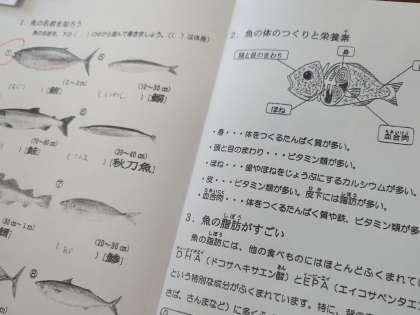 1. 魚の名前を知ろう
魚の名前を、下の( )ひらがなで書きましょう。(( )は体長)
①
(2～3m)
[鮪]
(10～30cm)
[鰯]
⑥
[鮭]
(30～40cm)
[秋刀魚]
⑦
(30～50cm)
[鯵]
⑧
2. 魚の体のつくりと栄養素
頭と目のまわり
身
ほね
皮
血合肉
・身・・・体をつくるたんぱく質が多い。
・頭と目のまわり・・・ビタミン類が多い。
・ほね・・・歯やほねをじょうぶにするカルシウムが多い。
・皮・・・ビタミン類が多い。皮下には脂肪が多い。
・血合肉・・・体をつくるたんぱく質や鉄、ビタミン類が多
3. 魚の脂肪がすごい
魚の脂肪には、他の食べものにはほとんどふくまれてい
DHA(ドコサヘキサエン酸)とEPA(エイコサペンタエ
という特別な成分がふくまれています。特に、背の
さば、さんまなど)に多く